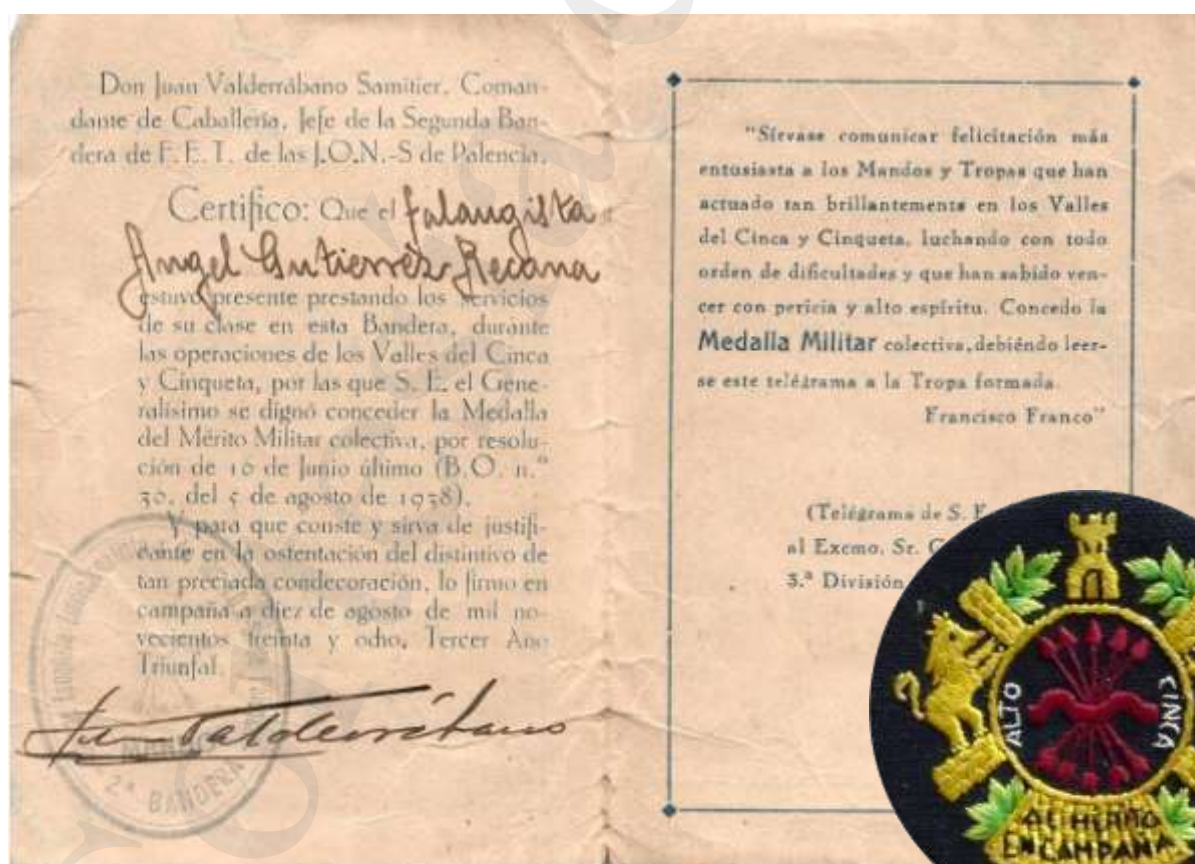 Don Juan Valderrábano Samitier, Coman-
dante de Caballería, Jefe de la Segunda Ban-
dera de F. E. T. de las J.O.N.-S de Palencia,
Certifico: Que el falangista
Angel Gutierrèz Recana
estuvo presente prestando los servicios
de su clase en esta Bandera, durante
las operaciones de los Valles del Cinca
y Cinqueta, por las que S. E. el Gene-
ralísimo se dignó conceder la Medalla
del Mérito Militar colectiva, por resolu-
ción de 16 de Junio último (B.O. n.º
30, del 5 de agosto de 1938).
Y para que conste y sirva de justifi-
cante en la ostentación del distintivo de
tan preciada condecoración, lo firmo en
campaña a diez de agosto de mil no-
vecientos treinta y ocho, Tercer Año
Triunfal.
Juan Valderrábano
Española
2ª BANDERA
"Sírvase comunicar felicitación más
entusiasta a los Mandos y Tropas que han
actuado tan brillantemente en los Valles
del Cinca y Cinqueta, luchando con todo
orden de dificultades y que han sabido ven-
cer con pericia y alto espíritu. Concedo la
Medalla Militar colectiva, debiéndo leer-
se este telégrama a la Tropa formada.
Francisco Franco"
(Telégrama de S. E.
al Excmo. Sr. G
3.ª División
ALTO CINCA
AL MERITO
EN CAMPAÑA